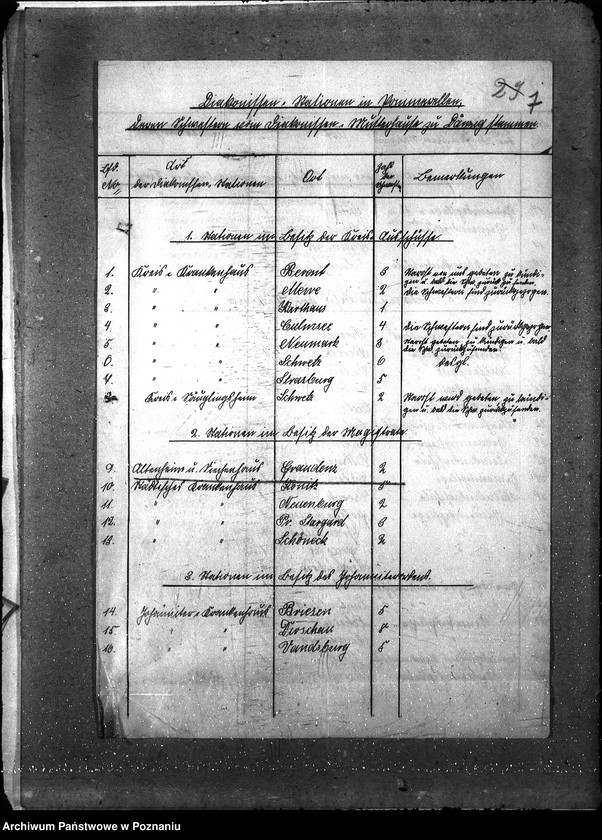 Diakonissen-Stationen in Pommerellen,
deren Schwestern vom Diakonissen-Mutterhause zu Danzig stammen.
Lfd. No. Art der Diakonissen-Stationen Ort Zahl der Schwestern Bemerkungen
1. Stationen im Besitz der Kreis-Ausschüsse
1. Kreis-Krankenhaus Berent 3 Starost uns gebeten zu kündigen u. bald die Schw. zurückzusenden.
2. " " Mewe 2 Die Schwestern sind zurückgezogen.
3. " " Karthaus 1
4. " " Culmsee 4 Die Schwestern sind zurückgezogen
5. " " Neumark 3 Starost gebeten zu kündigen u. bald die Schw. zurückzusenden.
6. " " Schwetz 6 desgl.
7. " " Strasburg 5
Kreis-Säuglingsheim Schwetz 2 Starost wird gebeten zu kündigen u. bald die Schw. zurückzusenden.
2. Stationen im Besitz der Magistrate
9. Altenheim u. Siechenhaus Graudenz 2
10. Städtisches Krankenhaus Konitz
11. " " Neuenburg 2
12. " " Pr. Stargard 3
13. " " Schöneck 2
3. Stationen im Besitz des Johanniterordens.
14. Johanniter-Krankenhaus Briesen 5
15 " " Dirschau
16. " " Vandsburg 5
Archiwum Państwowe w Poznaniu